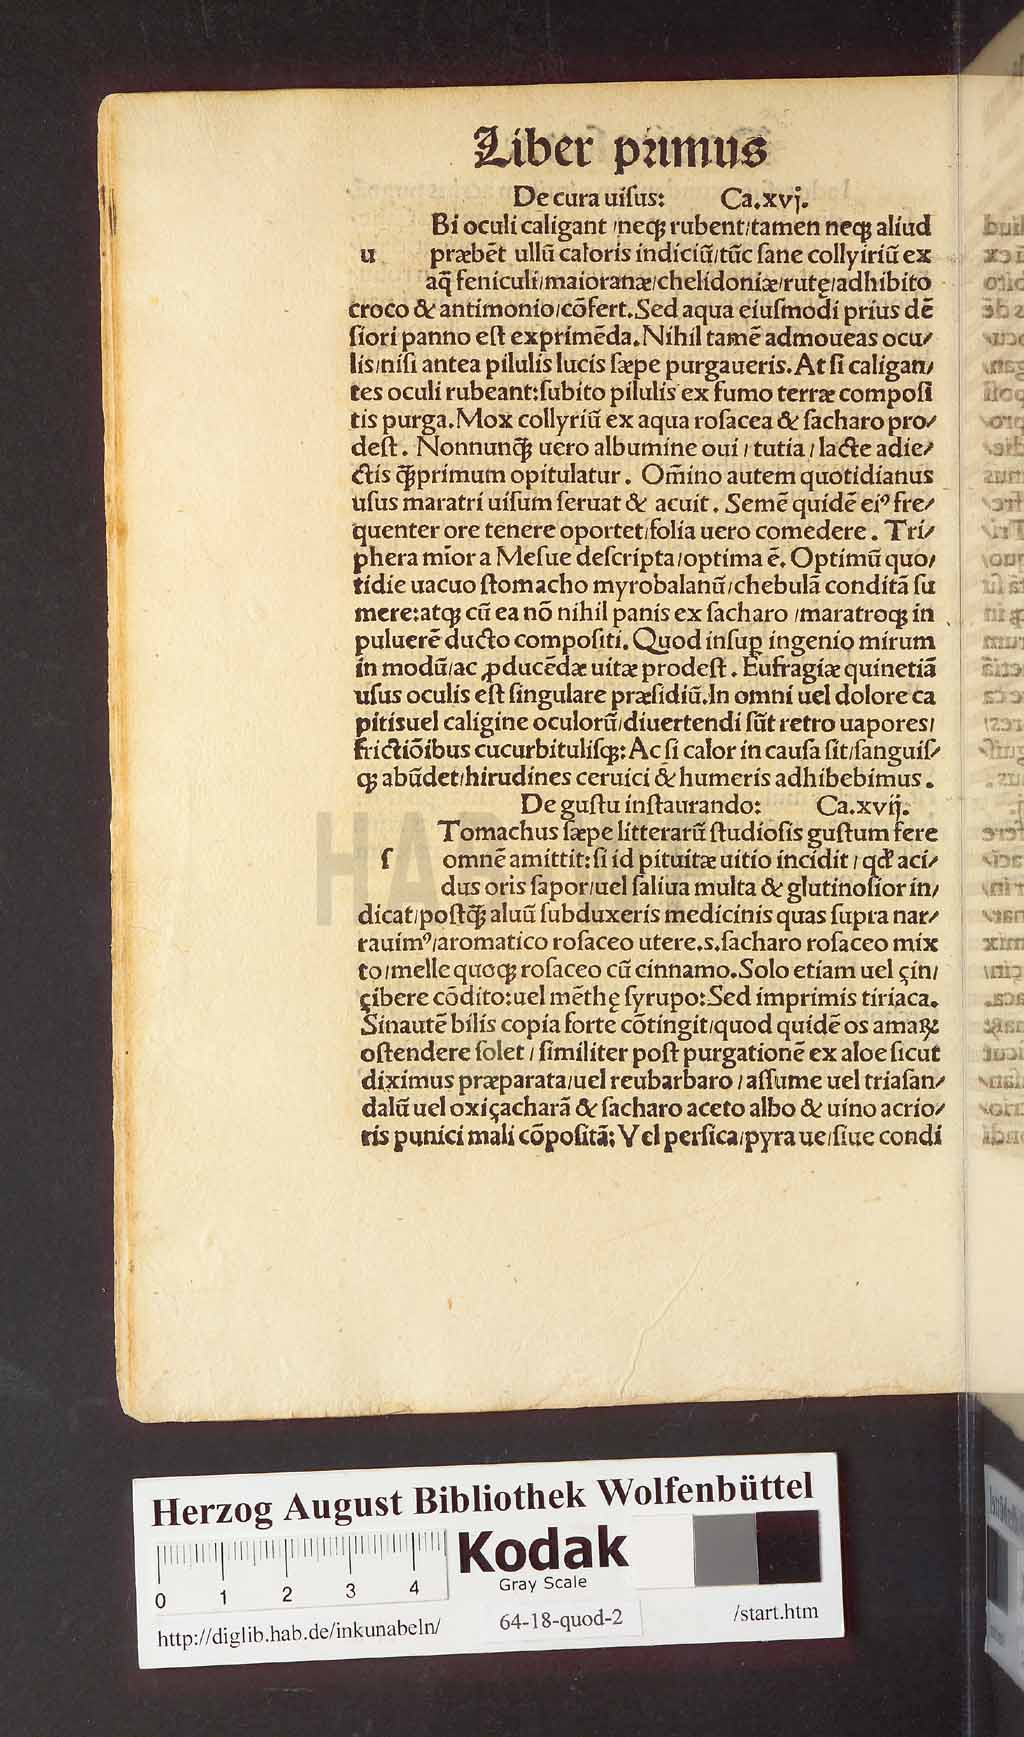 Liber primus
De cura uiſus: Ca.xvj.
Bi oculi caligant /neqꝫ rubent/tamen neqꝫ aliud
u præbēt ullū caloris indiciū/tūc ſane collyiriū ex
aq̄ feniculi/maioranæ/chelidoniæ/rutę/adhibito
croco & antimonio/cōfert. Sed aqua eiuſmodi prius dē
ſiori panno eſt exprimēda. Nihil tamē admoueas ocu/
lis/niſi antea pilulis lucis ſæpe purgaueris. At ſi caligan/
tes oculi rubeant:ſubito pilulis ex fumo terræ compoſi
tis purga. Mox collyriū ex aqua roſacea & ſacharo pro/
deſt. Nonnunq̄ꝫ uero albumine oui / tutia / lacte adie/
ctis q̄ꝫprimum opitulatur. Om̄ino autem quotidianus
uſus maratri uiſum ſeruat & acuit. Semē quidē eiꝰ fre/
quenter ore tenere oportet/folia uero comedere. Tri/
phera mīor a Meſue deſcripta/optima ē. Optimū quo/
tidie uacuo ſtomacho myrobalanū/chebulā conditā ſu
mere:atqꝫ cū ea nō nihil panis ex ſacharo /maratroqꝫ in
puluerē ducto compoſiti. Quod inſuꝑ ingenio mirum
in modū/ac ꝓducēdæ uitæ prodeſt. Eufragiæ quinetiā
uſus oculis eſt ſingulare præſidiū.In omni uel dolore ca
pitisuel caligine oculorū/diuertendi ſūt retro uapores/
frictiōibus cucurbituliſqꝫ: Ac ſi calor in cauſa ſit/ſanguiſ/
qꝫ abūdet/hirudines ceruici & humeris adhibebimus.
De guſtu inſtaurando: Ca.xvij.
Tomachus ſæpe litterarū ſtudioſis guſtum fere
ſ omnē amittit:ſi id pituitæ uitio incidit / qd̕ aci/
dus oris ſapor/uel ſaliua multa & glutinoſior in/
dicat/poſtq̄ꝫ aluū ſubduxeris medicinis quas ſupra nar/
rauimꝰ/aromatico roſaceo utere.s.ſacharo roſaceo mix
to/melle quoqꝫ roſaceo cū cinnamo. Solo etiam uel çin/
çibere cōdito:uel mēthę ſyrupo: Sed imprimis tiriaca.
Sinautē bilis copia forte cōtingit/quod quidē os amaꝝ
oſtendere ſolet / ſimiliter poſt purgationē ex aloe ſicut
diximus præparata/uel reubarbaro / aſſume uel triaſan/
dalū uel oxiçacharā & ſacharo aceto albo & uino acrio/
ris punici mali cōpoſitā: Vel perſica/pyra ue/ſiue condi
HAB
Herzog August Bibliothek Wolfenbüttel
0 1 2 3 4
Kodak
Gray Scale
http://diglib.hab.de/inkunabeln/
64-18-quod-2
/start.htm